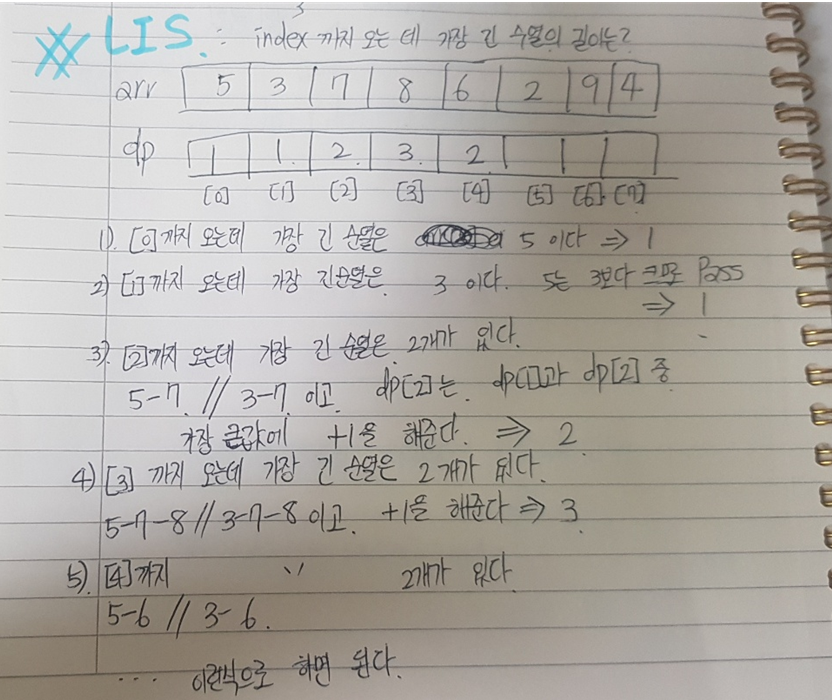 LIS. : index 까지 오는 데 가장 긴 수열의 길이는?
arr 5 3 7 8 6 2 9 4
dp 1 1. 2. 3. 2
[0] [1] [2] [3] [4] [5] [6] [7]
1). [0]까지 오는데 가장 긴 수열은 5 이다 ⇒ 1
2) [1]까지 오는데 가장 긴 수열은 3 이다. 5는 3보다 크므로 Pass
⇒ 1
3). [2]까지 오는데 가장 긴 수열은 2개가 있다.
5-7. // 3-7 이고. dp[2]는. dp[1]과 dp[2] 중
가장 큰값에 +1을 해준다. ⇒ 2
4) [3] 까지 오는데 가장 긴 수열은 2개가 있다.
5-7-8 // 3-7-8 이고. +1을 해준다 ⇒ 3
5). [4]까지 〃 2개가 있다
5-6 // 3-6.
... 이런식으로 하면 된다.